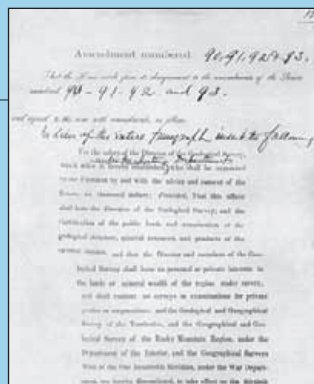 Amendment numbered 90, 91, 92 & 93.
That the House recede from its disagreement to the amendments of the Senate
numbered 90 - 91 - 92 and 93.
and agreed to the same with amendments, as follows:
In lieu of the entire paragraph insert the following
For the salary of the Director of the Geological Survey,
under the Interior Department
which office is hereby established, who shall be appointed
by the President by and with the advice and consent of the
Senate, six thousand dollars: Provided, That this officer
shall have the direction of the Geological Survey, and the
classification of the public lands and examination of the
geological structure, mineral resources, and products of the
national domain, and that the Director and members of the Geo-
logical Survey shall have no personal or private interests in
the lands or mineral wealth of the region under survey,
and shall execute no surveys or examinations for private
parties or corporations; and the Geological and Geographical
Survey of the Territories, and the Geographical and Geo-
logical Survey of the Rocky Mountain Region, under the
Department of the Interior, and the Geographical Surveys
West of the One Hundredth Meridian, under the War Depart-
ment, are hereby discontinued, to take effect on the thirtieth